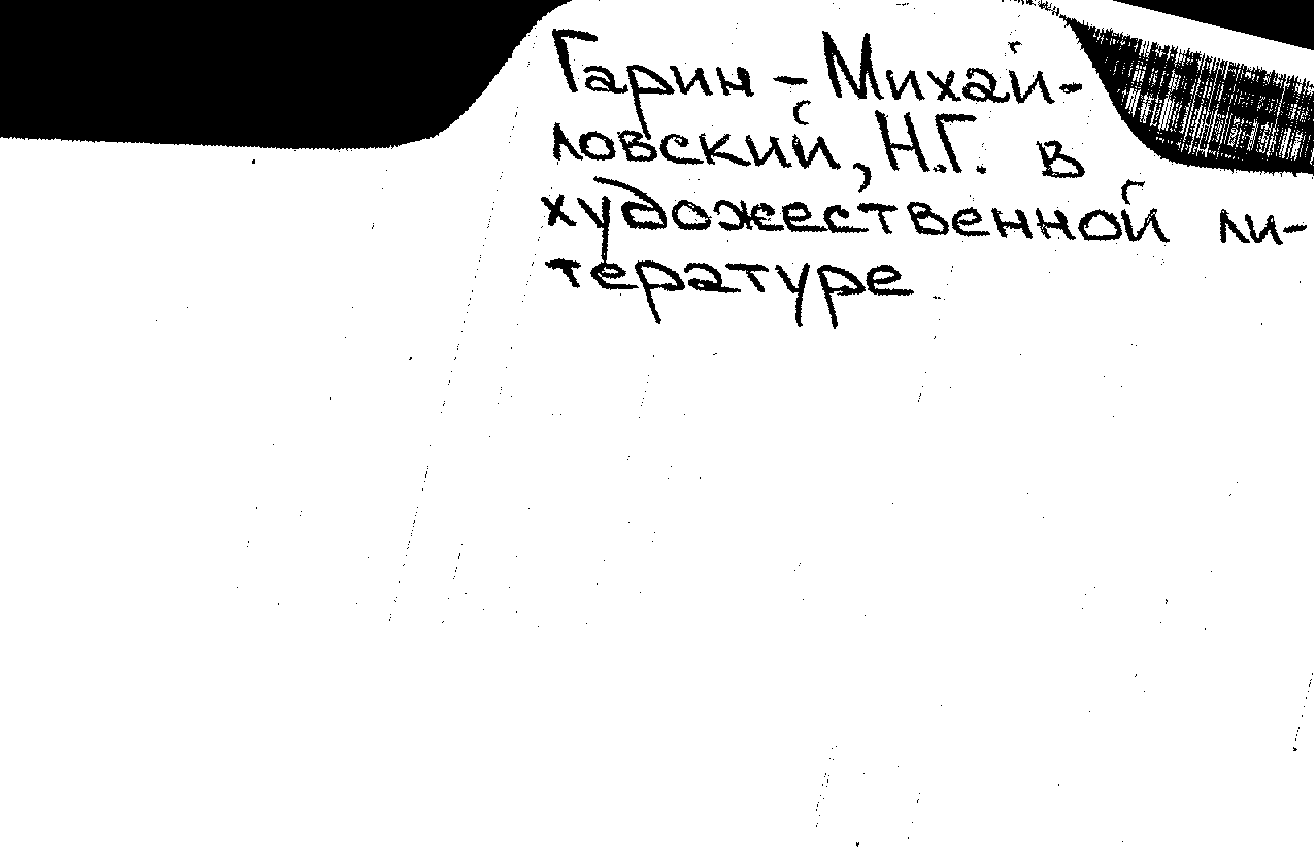 Гарин-Михай-
ловский, Н.Г. в
художественной ли-
тературе